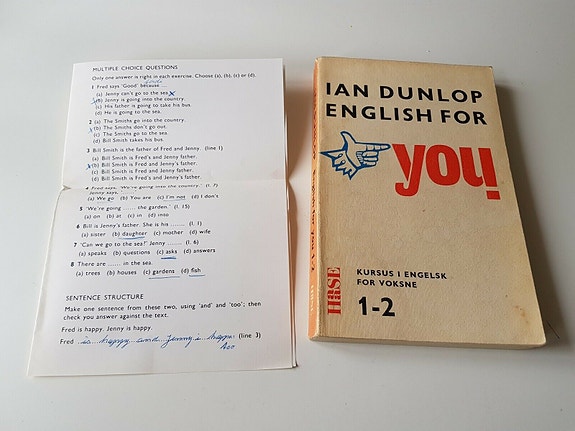 MULTIPLE CHOICE QUESTIONS
Only one answer is right in each exercise. Choose (a), (b), (c) or (d).
1 Fred says 'Good' because ...
(a) Jenny can't go to the sea. x
(b) Jenny is going into the country.
(c) His father is going to take his bus.
(d) He is going to the sea.
2 (a) The Smiths go into the country.
(b) The Smiths don't go out.
(c) The Smiths go to the sea.
(d) Bill Smith takes his bus.
3 Bill Smith is the father of Fred and Jenny. (line 1)
(a) Bill Smith is Fred's and Jenny father.
x(b) Bill Smith is Fred's and Jenny's father.
(c) Bill Smith is Fred and Jenny's father.
(d) Bill Smith is Fred and Jenny father.
4 Fred says, 'We're going into the country.' (l. 7)
Jenny says,
(a) We go (b) You are (c) I'm not (d) I don't
5 'We're going ...... the garden.' (l. 15)
(a) on (b) at (c) in (d) into
6 Bill is Jenny's father. She is his ....... (l. 1)
(a) sister (b) daughter (c) mother (d) wife
7 'Can we go to the sea?' Jenny ....... (l. 6)
(a) speaks (b) questions (c) asks (d) answers
8 There are ...... in the sea.
(a) trees (b) houses (c) gardens (d) fish
SENTENCE STRUCTURE
Make one sentence from these two, using 'and' and 'too'; then
check you answer against the text.
Fred is happy. Jenny is happy.
Fred is happy and Jenny is happy (line 3)
too
IAN DUNLOP
ENGLISH FOR
you!
KURSUS I ENGELSK
FOR VOKSNE
1-2
HASE